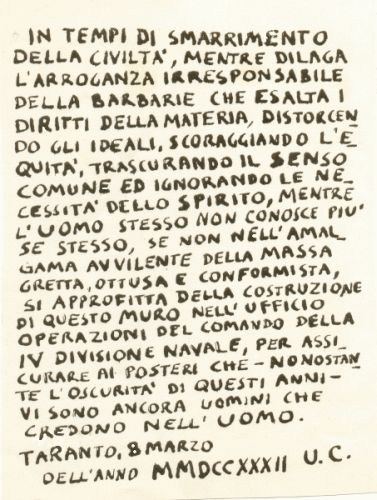 IN TEMPI DI SMARRIMENTO
DELLA CIVILTA', MENTRE DILAGA
L'ARROGANZA IRRESPONSABILE
DELLA BARBARIE CHE ESALTA I
DIRITTI DELLA MATERIA, DISTORCEN
DO GLI IDEALI, SCORAGGIANDO L'E
QUITA', TRASCURANDO IL SENSO
COMUNE ED IGNORANDO LE NE
CESSITA' DELLO SPIRITO, MENTRE
L'UOMO STESSO NON CONOSCE PIU'
SE STESSO, SE NON NELL'AMAL
GAMA AVVILENTE DELLA MASSA
GRETTA, OTTUSA E CONFORMISTA,
SI APPROFITTA DELLA COSTRUZIONE
DI QUESTO MURO NELL'UFFICIO
OPERAZIONI DEL COMANDO DELLA
IV DIVISIONE NAVALE, PER ASSI
CURARE AI POSTERI CHE - NONOSTAN
TE L'OSCURITA' DI QUESTI ANNI -
VI SONO ANCORA UOMINI CHE
CREDONO NELL'UOMO.
TARANTO, 8 MARZO
DELL'ANNO MMDCCXXXII U.C.